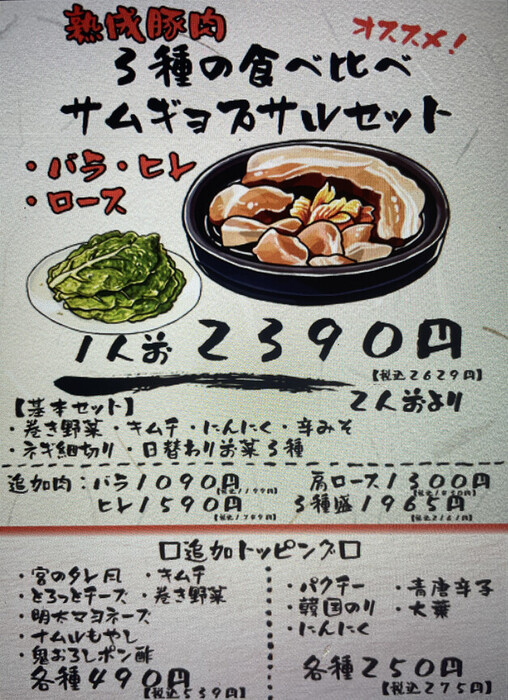 熟成豚肉
オススメ!
3種の食べ比べ
サムギョプサルセット
・バラ・ヒレ
・ロース
1人前 2390円
【税込2629円】
2人前より
【基本セット】
・巻き野菜・キムチ・にんにく・辛みそ
・ネギ細切り・日替わりお菜3種
追加肉:バラ1090円 肩ロース1300円
【税込1199円】
ヒレ1590円 3種盛1965円
□追加トッピング□
・宮のタレ風 ・キムチ
・とろっとチーズ ・巻き野菜
・明太マヨネーズ
・ナムルもやし
・鬼おろしポン酢
各種490円
【税込539円】
・パクチー ・青唐辛子
・韓国のり ・大葉
・にんにく
各種250円
【税込275円】